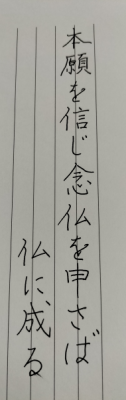 本願を信じ念仏を申さば
仏に成る